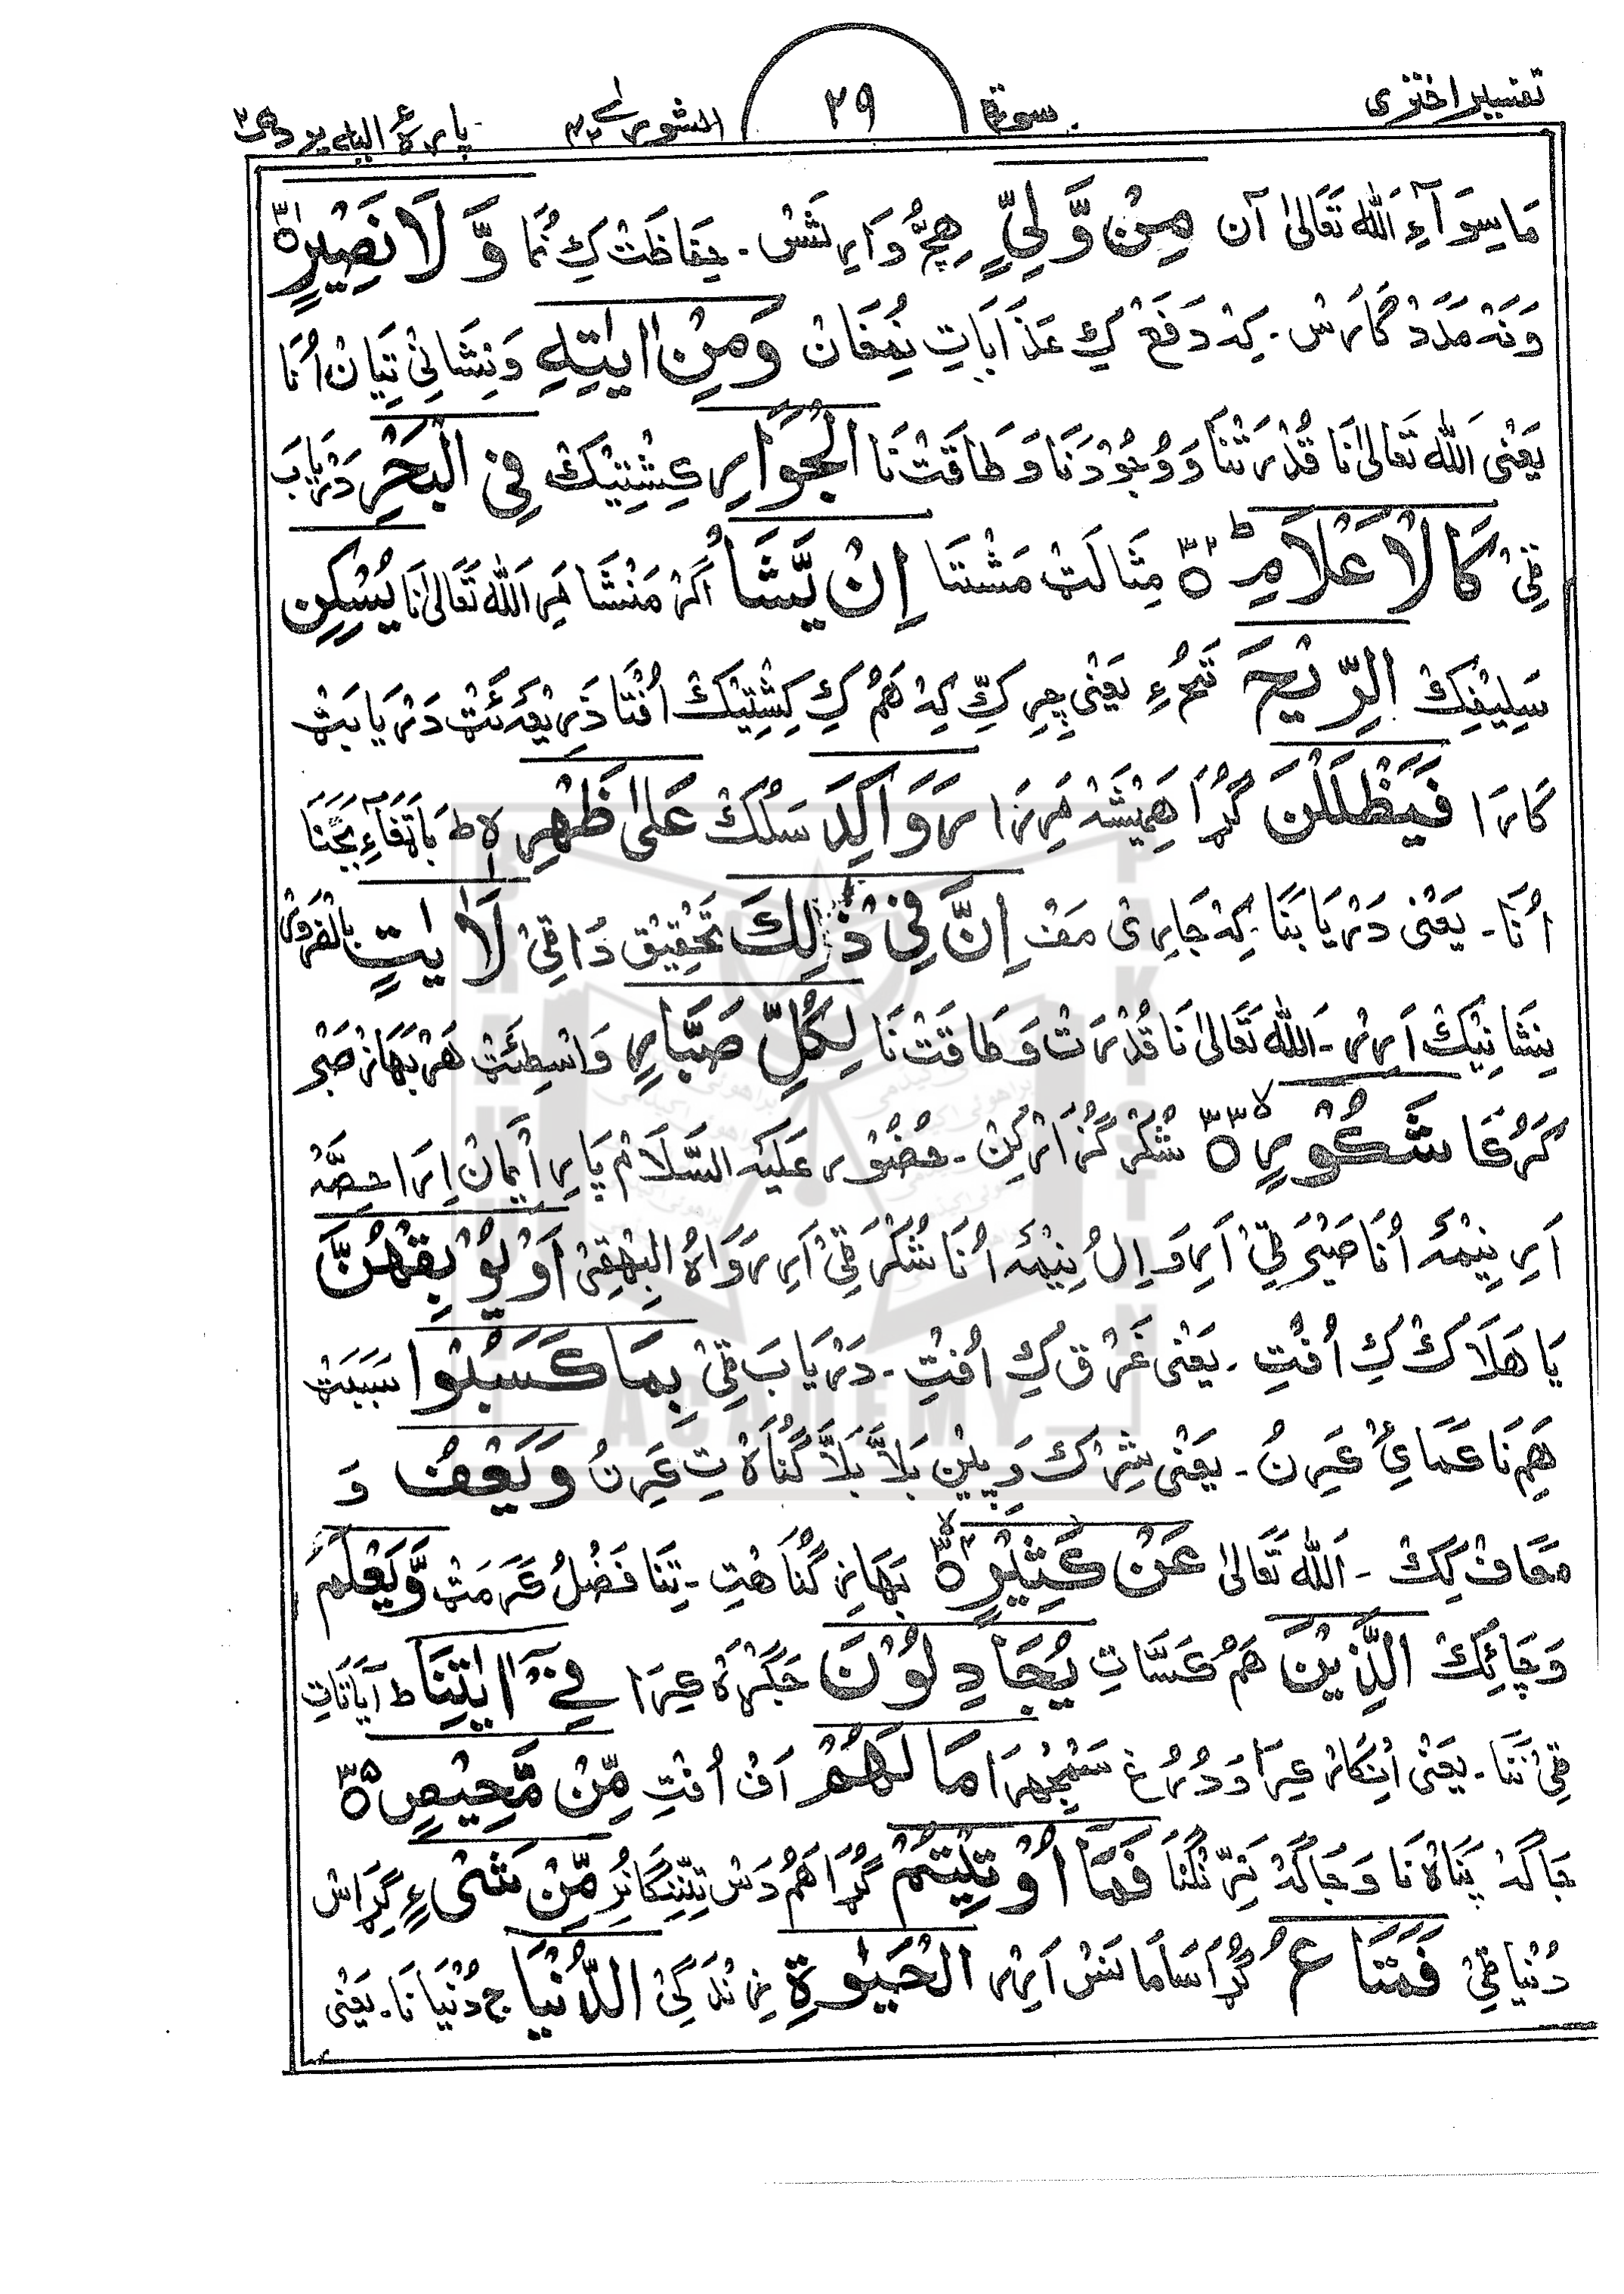 تفسیر اختری سورة ۲۹ الشورٰی ۴۲ پارهٔ الیه یرد ۲۵
مَاسِوَآءِ اَللّٰه تَعَالیٰ آن مِنْ وَّلِیٍّ هِچُّ وَارِثَسْ۔ حِفَاظَتْ کِ نُمَا وَّلَا نَصِیْرٍ ۳۱
وَنَه مَدَدْ گَارَسْ۔ کِه دَفَعْ کِ عَذَابَاتِ نُمَفَانْ وَمِنْ اٰیٰتِهِ وَنِشَانِیْ تِیَانْ اُنَا
یَعْنِی اَللّٰه تَعَالیٰ نَا قُدْرَتْنَا وَوُجُوْدَنَا وَطَاقَتْ نَا الْجَوَارِ کِشْتِیْکْ فِی الْبَحْرِ دَرْیَابَ
ٹِیْ کَالْاَعْلَامِ ؕ ۳۲ مِثَالَٹْ مَشْتَا اِنْ یَّشَاْ اَگَرْ مَنْشَا مَرِ اَللّٰه تَعَالیٰ نَا یُسْکِنِ
سَلِیْفِکْ الرِّیْحَ تَهُوءِ یَعْنِی چِرِکِّ کِه هَمُ کِ کِشْتِیْکْ اُفْتَا ذَرِیْعَه ئَٹْ دَرْیَابَٹْ
کَارَا فَیَظْلَلْنَ گُڑَا هَمِیْشَه مَرِرَا رَوَاکِدَ سَلُکْ عَلٰی ظَهْرِهٖ ؕ بَاتَغَاءِ بَجَّنَا
اُنَا۔ یَعْنِی دَرْیَابَنَا۔ کِه جَارِیْ مَفَ اِنَّ فِیْ ذٰلِكَ تَحْقِیْق دَاٹِیْ لَاٰیٰتٍ بِالضَّرُوْرْ
نِشَانِیْکْ اَرِیْر۔ اَللّٰه تَعَالیٰ نَا قُدْرَتْ وَطَاقَتْ نَا لِکُلِّ صَبَّارٍ وَاسْطِئَٹْ هَرْ بَهَازْ صَبْر
کَرُکَا شَکُوْرٍ ۙ ۳۳ شُکْر گُزَارْ کِنْ۔ حُضُوْر عَلَیْه السَّلَامْ پَارِ اِیْمَانْ اِرَا حِصَّه
اَرِ نِیْمَه اُنَا صَبْر ٹِیْ اَرِ وَاِلُ نِیْمَه اُنَا شُکْر ٹِیْ اَرِ رَوَاهُ الْبِهَقِیْ اَوْ یُوْبِقْهُنَّ
یَا هَلَاکْ کِ اُفْتِ۔ یَعْنِی غَرْق کِ اُفْتِ۔ دَرْیَابَ ٹِیْ بِمَا کَسَبُوْا سَبَبَٹْ
هَمِنَا عَمَائِ کَرِنُ۔ یَعْنِی شِرْکْ وَپِیْن بَلَّا بَلَّا گُنَاهْ تِ کَرِنُ وَیَعْفُ وَ
مَعَاف کِکْ۔ اَللّٰه تَعَالیٰ عَنْ کَثِیْرٍ ۙ ۳۴ بَهَازِ گُنَاهْتِ۔ تِنَا فَضْلُ کَرَمَٹْ وَّیَعْلَمَ
وَچَائِکْ الَّذِیْنَ هَمُ کَسَّاتِ یُجَادِلُوْنَ جَگْرَهْ کِرَا فِیْۤ اٰیٰتِنَا ؕ آیَاتَاتِ
ٹِیْ نَنَا۔ یَعْنِی اِنْکَارْ کِرَا وَدُرُغْ سَمْجْهرَا مَا لَهُمْ اَفْ اُفْتِ مِّنْ مَّحِیْصٍ ۳۵
جَاگَه پَنَاهْ نَا وَجَاگَه نَرِّنْگْنَا فَمَآ اُوْتِیْتُمْ گُڑَا هَمُ دَسْ تِنِّنْگَانُرِ مِّنْ شَیْءٍ گِڑَاسْ
دُنْیَا ٹِیْ فَمَتَاعُ گُڑَا سَامَانَسْ اَرِیْر الْحَیٰوةِ زِنْدَگِیْ الدُّنْیَا ج دُنْیَا نَا۔ یَعْنِی